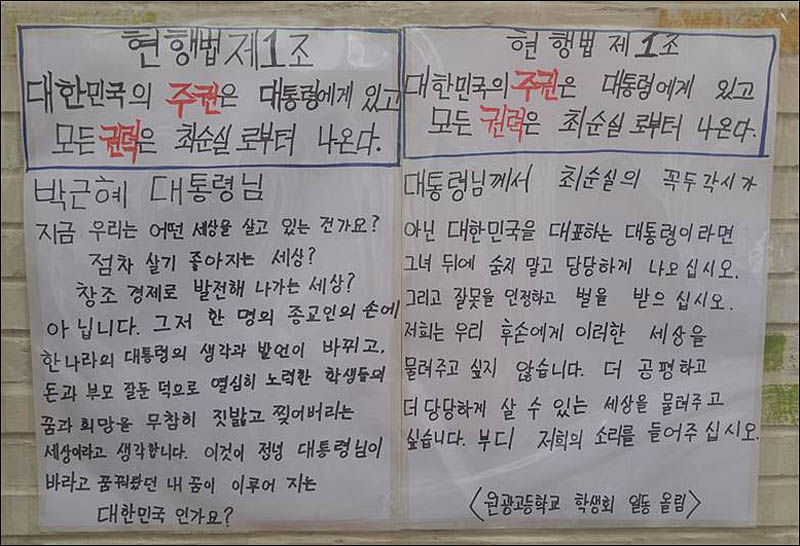 현행법 제1조
대한민국의 주권은 대통령에게 있고
모든 권력은 최순실 로부터 나온다.
박근혜 대통령님
지금 우리는 어떤 세상을 살고 있는 건가요?
점차 살기 좋아지는 세상?
창조 경제로 발전해 나가는 세상?
아닙니다. 그저 한 명의 종교인의 손에
한나라의 대통령의 생각과 발언이 바뀌고,
돈과 부모 잘둔 덕으로 열심히 노력한 학생들의
꿈과 희망을 무참히 짓밟고 찢어버리는
세상이라고 생각합니다. 이것이 정녕 대통령님이
바라고 꿈꿔왔던 내 꿈이 이루어 지는
대한민국 인가요?
현행법 제1조
대한민국의 주권은 대통령에게 있고
모든 권력은 최순실 로부터 나온다.
대통령님께서 최순실의 꼭두각시가
아닌 대한민국을 대표하는 대통령이라면
그녀 뒤에 숨지 말고 당당하게 나오십시오.
그리고 잘못을 인정하고 벌을 받으십시오.
저희는 우리 후손에게 이러한 세상을
물려주고 싶지 않습니다. 더 공평하고
더 당당하게 살 수 있는 세상을 물려주고
싶습니다. 부디 저희의 소리를 들어주십시오.
〈원광고등학교 학생회 일동 올림〉